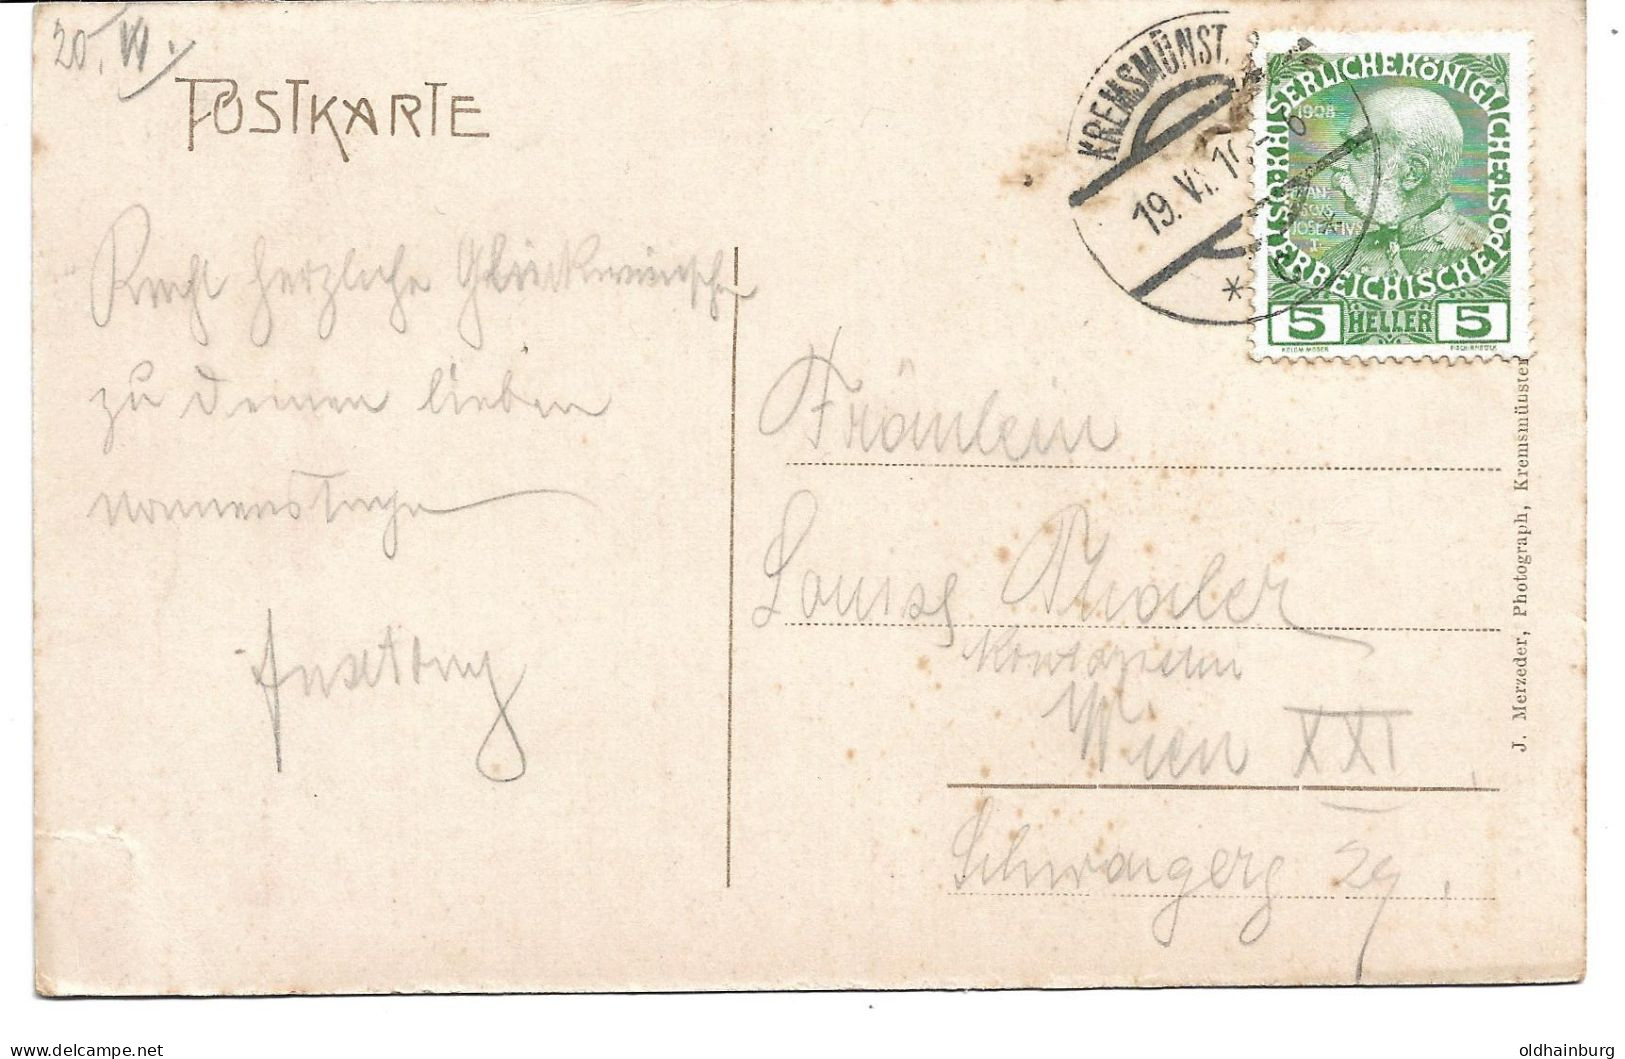 20. VI.
POSTKARTE
KREMSMÜNST.
19. VI. 10
KAISERLICHE KÖNIGLICHE
ÖSTERREICHISCHE POST
1908
5 HELLER 5
KOLOM. MOSER
Recht herzliche Glückwünsche
zu deinem lieben
Namenstage
Fräulein
Louise Thaler
Wien XXI.
Schwaigerg 29.
J. Merzeder, Photograph, Kremsmünster
delcampe.net
oldhainburg